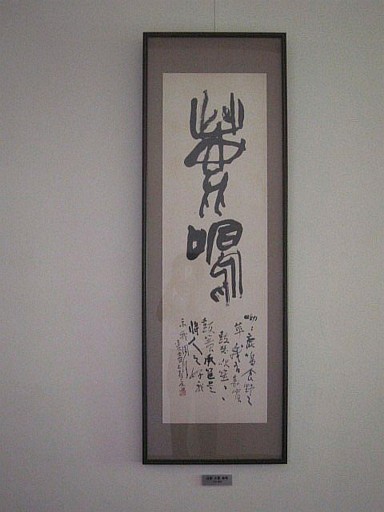 鹿鳴
呦〻鹿鳴食野之
苹我有嘉賓
鼓瑟吹笙〻〻
鼓簧承筐是
將人之好我